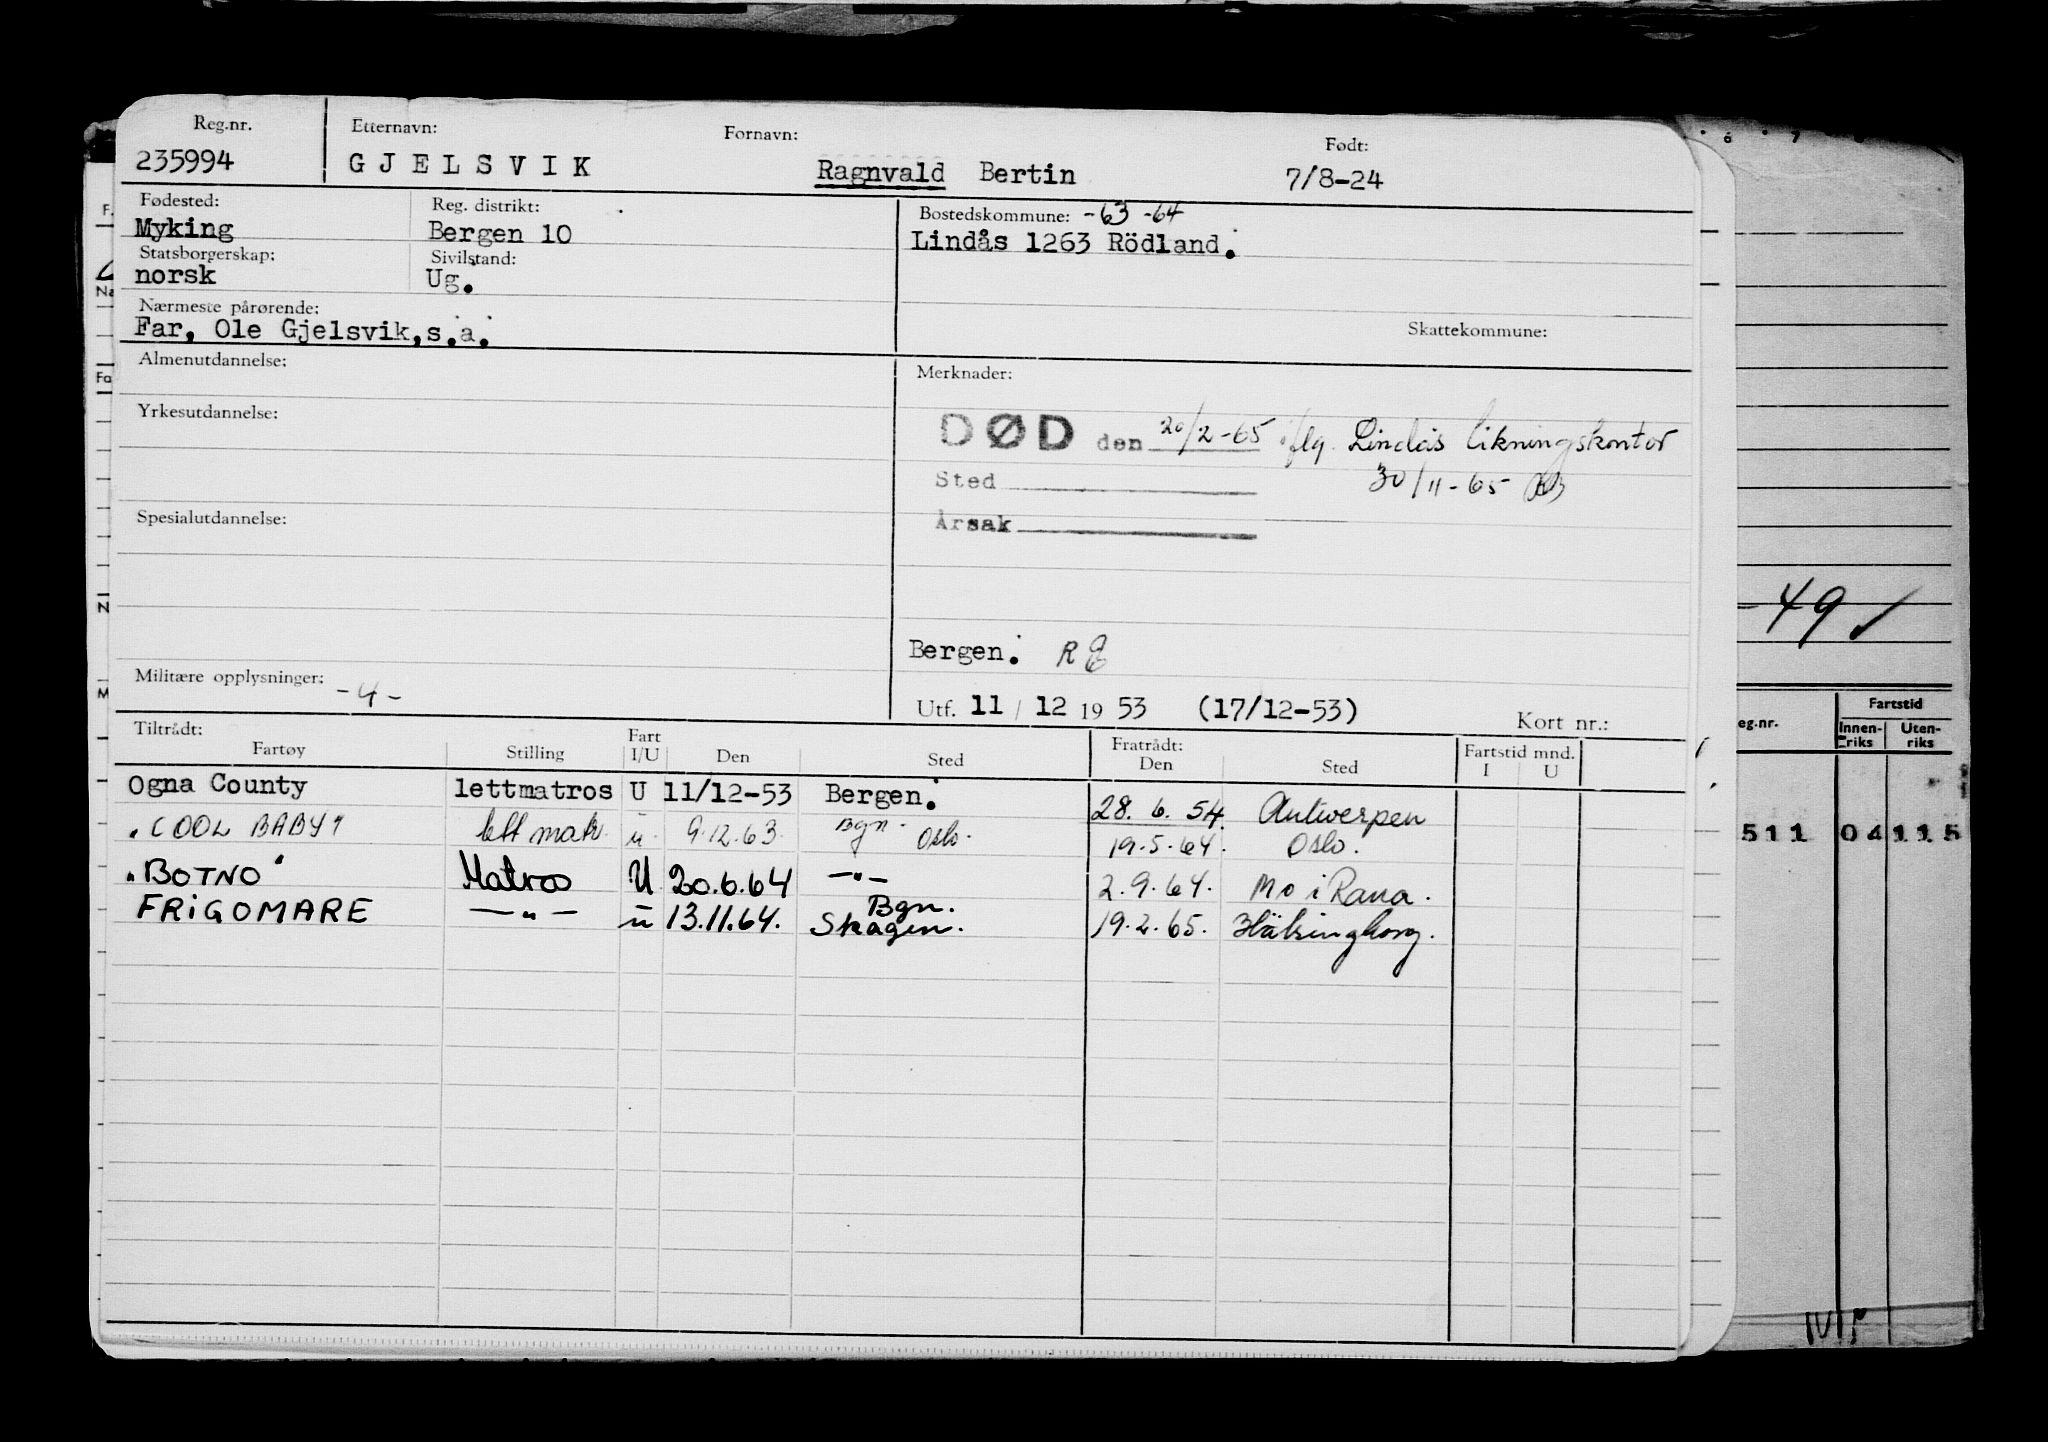 Reg.nr. Etternavn: Fornavn: Født:
235994 GJELSVIK Ragnvald Bertin 7/8-24
Fødested: Reg. distrikt: Bostedskommune: -63 -64
Myking Bergen 10 Lindås 1263 Rödland.
Statsborgerskap: Sivilstand:
norsk Ug.
Nærmeste pårørende:
Far, Ole Gjelsvik,s.a. Skattekommune:
Almenutdannelse: Merknader:
Yrkesutdannelse:
DØD den 20/2-65 iflg. Lindås likningskontor
Sted 30/11-65
Årsak
Spesialutdannelse:
Bergen.
Militære opplysninger: -4-
Utf. 11 / 12 19 53 (17/12-53) Kort nr.:
Tiltrådt: Fart Fratrådt: Fartstid mnd.
Fartøy Stilling I/U Den Sted Den Sted I U
Ogna County lettmatros U 11/12-53 Bergen. 28. 6. 54. Antwerpen
"COOL BABY" lett matr. u. 9.12.63. Bgn. Oslo. 19.5.64. Oslo.
"BOTNO" Matros U 20.6.64 —"— 2.9.64. Mo i Rana.
FRIGOMARE —"— u 13.11.64. Bgn. Skagen. 19.2.65. Hälsingborg.
-49 ✓
Fartstid
eg.nr. Innen-riks Uten-riks
511 04 115
F.
Na
Fa
N
M